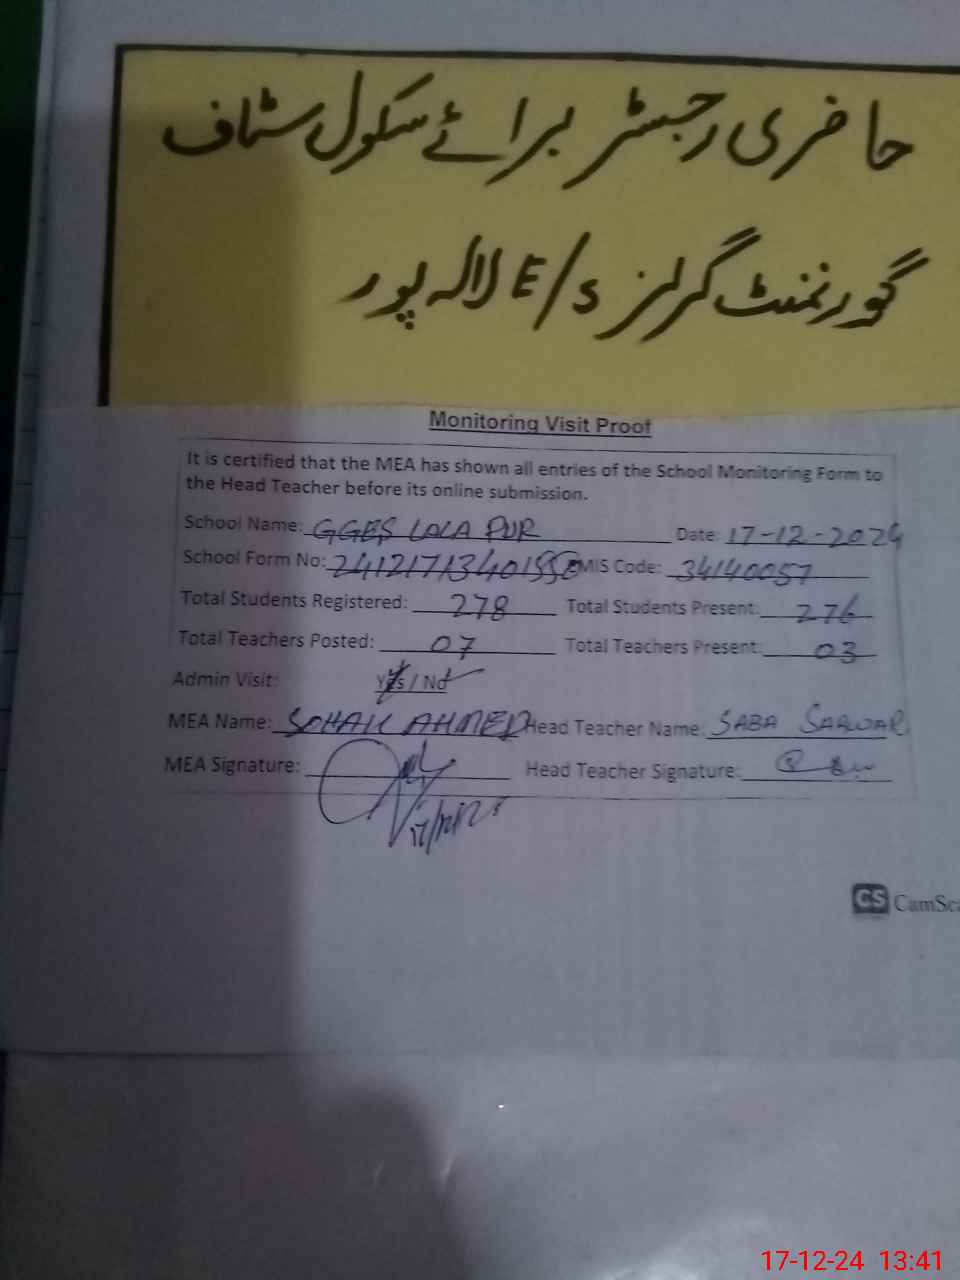 حاضری رجسٹر برائے سکول سٹاف
گورنمنٹ گرلز E/s لالہ پور
Monitoring Visit Proof
It is certified that the MEA has shown all entries of the School Monitoring Form to
the Head Teacher before its online submission.
School Name: GGES LALA PUR Date: 17-12-2024
School Form No: EMIS Code: 34140057
Total Students Registered: 278 Total Students Present: 276
Total Teachers Posted: 07 Total Teachers Present: 03
Admin Visit: Yes / No
MEA Name: SOHAIL AHMED Head Teacher Name: SABA SARWAR
MEA Signature: Head Teacher Signature:
CS CamSca
17-12-24 13:41